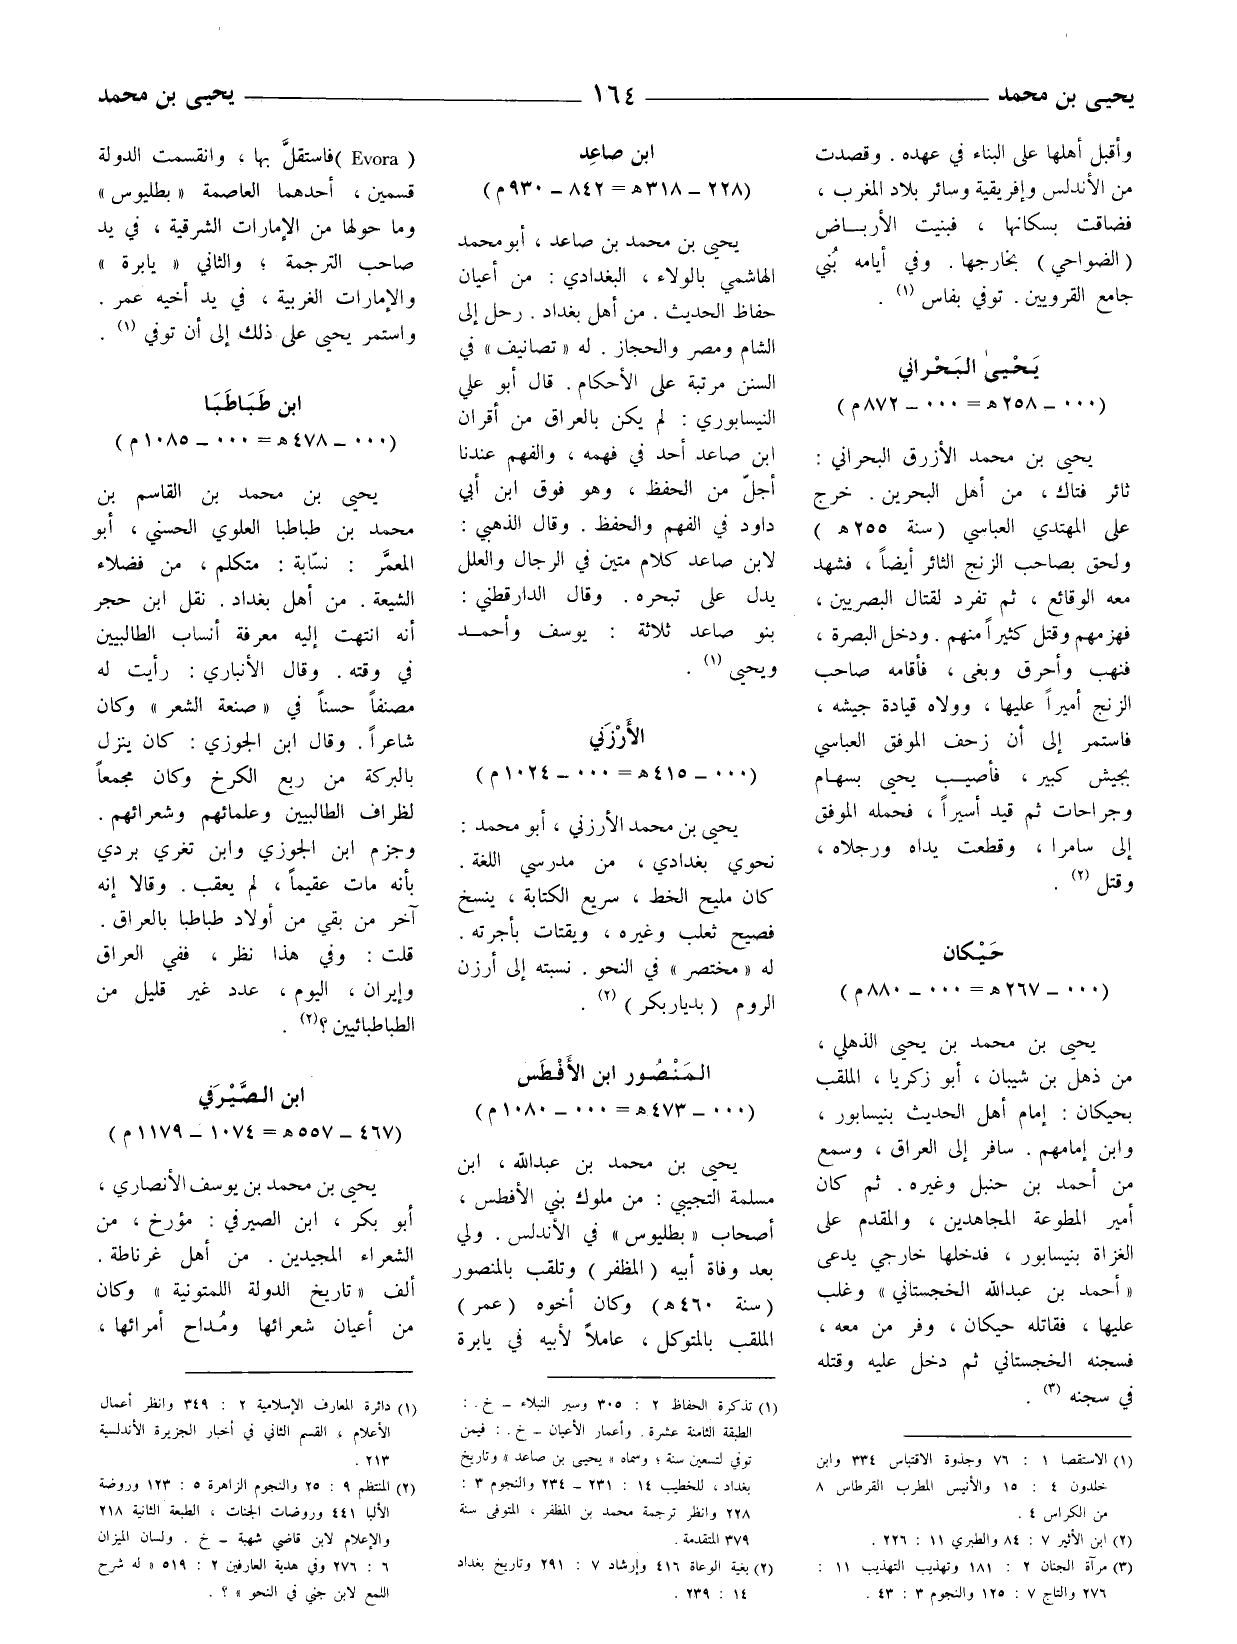 يحيى بن محمد ١٦٤ يحيى بن محمد
وأقبل أهلها على البناء في عهده . وقصدت
من الأندلس وإفريقية وسائر بلاد المغرب ،
فضاقت بسكانها ، فبنيت الأربـاض
(الضواحي) بخارجها. وفي أيامه بُني
جامع القرويين . توفي بفاس (١) .
يَحْيىٰ البَحْراني
(٠٠٠ – ٢٥٨ هـ = ٠٠٠ – ٨٧٢ م)
يحيى بن محمد الأزرق البحراني :
ثائر فتاك ، من أهل البحرين . خرج
على المهتدي العباسي (سنة ٢٥٥ هـ )
ولحق بصاحب الزنج الثائر أيضاً ، فشهد
معه الوقائع ، ثم تفرد لقتال البصريين ،
فهزمهم وقتل كثيراً منهم . ودخل البصرة ،
فنهب وأحرق وبغى ، فأقامه صاحب
الزنج أميراً عليها ، وولاه قيادة جيشه ،
فاستمر إلى أن زحف الموفق العباسي
بجيش كبير ، فأصيب يحيى بسهام
وجراحات ثم قيد أسيراً ، فحمله الموفق
إلى سامرا ، وقطعت يداه ورجلاه ،
وقتل (٢) .
حَيْكان
(٠٠٠ – ٢٦٧ هـ = ٠٠٠ – ٨٨٠ م)
يحيى بن محمد بن يحيى الذهلي ،
من ذهل بن شيبان ، أبو زكريا ، الملقب
بحيكان : إمام أهل الحديث بنيسابور ،
وابن إمامهم . سافر إلى العراق ، وسمع
من أحمد بن حنبل وغيره . ثم كان
أمير المطوعة المجاهدين ، والمقدم على
الغزاة بنيسابور ، فدخلها خارجي يدعى
«أحمد بن عبدالله الخجستاني» وغلب
عليها ، فقاتله حيكان ، وفر من معه ،
فسجنه الخجستاني ثم دخل عليه وقتله
في سجنه (٣) .
(١) الاستقصا ١ : ٧٦ وجذوة الاقتباس ٣٣٤ وابن
خلدون ٤ : ١٥ والأنيس المطرب القرطاس ٨
من الكراس ٤ .
(٢) ابن الأثير ٧ : ٨٤ والطبري ١١ : ٢٢٦ .
(٣) مرآة الجنان ٢ : ١٨١ وتهذيب التهذيب ١١ :
٢٧٦ والتاج ٧ : ١٢٥ والنجوم ٣ : ٤٣ .
ابن صاعِد
(٢٢٨ – ٣١٨ هـ = ٨٤٢ – ٩٣٠ م)
يحيى بن محمد بن صاعد ، أبو محمد
الهاشمي بالولاء ، البغدادي : من أعيان
حفاظ الحديث . من أهل بغداد . رحل إلى
الشام ومصر والحجاز . له «تصانيف» في
السنن مرتبة على الأحكام . قال أبو علي
النيسابوري : لم يكن بالعراق من أقران
ابن صاعد أحد في فهمه ، والفهم عندنا
أجلّ من الحفظ ، وهو فوق ابن أبي
داود في الفهم والحفظ . وقال الذهبي :
لابن صاعد كلام متين في الرجال والعلل
يدل على تبحره . وقال الدارقطني :
بنو صاعد ثلاثة : يوسف وأحمـد
ويحيى (١) .
الأَرْزَني
(٠٠٠ – ٤١٥ هـ = ٠٠٠ – ١٠٢٤ م)
يحيى بن محمد الأرزني ، أبو محمد :
نحوي بغدادي ، من مدرسي اللغة .
كان مليح الخط ، سريع الكتابة ، ينسخ
فصيح ثعلب وغيره ، ويقتات بأجرته .
له «مختصر» في النحو . نسبته إلى أرزن
الروم (بديار بكر ) (٢) .
المَنْصُور ابن الأَفْطَس
(٠٠٠ – ٤٧٣ هـ = ٠٠٠ – ١٠٨٠ م)
يحيى بن محمد بن عبدالله ، ابن
مسلمة التجيبي : من ملوك بني الأفطس ،
أصحاب «بطليوس» في الأندلس . ولي
بعد وفاة أبيه (المظفر ) وتلقب بالمنصور
(سنة ٤٦٠ هـ) وكان أخوه (عمر )
الملقب بالمتوكل ، عاملاً لأبيه في يابرة
(١) تذكرة الحفاظ ٢ : ٣٠٥ وسير النبلاء – خ . :
الطبقة الثامنة عشرة . وأعمار الأعيان – خ . : فيمن
توفي لتسعين سنة ؛ وسماه «يحيى بن صاعد» وتاريخ
بغداد ، للخطيب ١٤ : ٢٣١ – ٢٣٤ والنجوم ٣ :
٢٢٨ وانظر ترجمة محمد بن المظفر ، المتوفى سنة
٣٧٩ المتقدمة .
(٢) بغية الوعاة ٤١٦ وإرشاد ٧ : ٢٩١ وتاريخ بغداد
١٤ : ٢٣٩ .
( Evora )فاستقلَّ بها ، وانقسمت الدولة
قسمين ، أحدهما العاصمة «بطليوس»
وما حولها من الإمارات الشرقية ، في يد
صاحب الترجمة ؛ والثاني « يابرة »
والإمارات الغربية ، في يد أخيه عمر .
واستمر يحيى على ذلك إلى أن توفي (١) .
ابن طَبَاطَبَا
(٠٠٠ – ٤٧٨ هـ = ٠٠٠ – ١٠٨٥ م)
يحيى بن محمد بن القاسم بن
محمد بن طباطبا العلوي الحسني ، أبو
المعمَّر : نسّابة : متكلم ، من فضلاء
الشيعة . من أهل بغداد . نقل ابن حجر
أنه انتهت إليه معرفة أنساب الطالبيين
في وقته . وقال الأنباري : رأيت له
مصنفاً حسناً في « صنعة الشعر » وكان
شاعراً . وقال ابن الجوزي : كان ينزل
بالبركة من ربع الكرخ وكان مجمعاً
لظراف الطالبيين وعلمائهم وشعرائهم .
وجزم ابن الجوزي وابن تغري بردي
بأنه مات عقيماً ، لم يعقب . وقالا إنه
آخر من بقي من أولاد طباطبا بالعراق .
قلت : وفي هذا نظر ، ففي العراق
وإيران ، اليوم ، عدد غير قليل من
الطباطبائيين ؟(٢) .
ابن الصَّيْرَفي
(٤٦٧ – ٥٥٧ هـ = ١٠٧٤ – ١١٧٩ م)
يحيى بن محمد بن يوسف الأنصاري ،
أبو بكر ، ابن الصيرفي : مؤرخ ، من
الشعراء المجيدين . من أهل غرناطة .
ألف «تاريخ الدولة اللمتونية » وكان
من أعيان شعرائها ومُداح أمرائها ،
(١) دائرة المعارف الإسلامية ٢ : ٣٤٩ وانظر أعمال
الأعلام ، القسم الثاني في أخبار الجزيرة الأندلسية
٢١٣ .
(٢) المنتظم ٩ : ٢٥ والنجوم الزاهرة ٥ : ١٢٣ وروضة
الألبا ٤٤١ وروضات الجنات ، الطبعة الثانية ٢١٨
والإعلام لابن قاضي شهبة – خ . ولسان الميزان
٦ : ٢٧٦ وفي هدية العارفين ٢ : ٥١٩ « له شرح
اللمع لابن جني في النحو » ؟ .